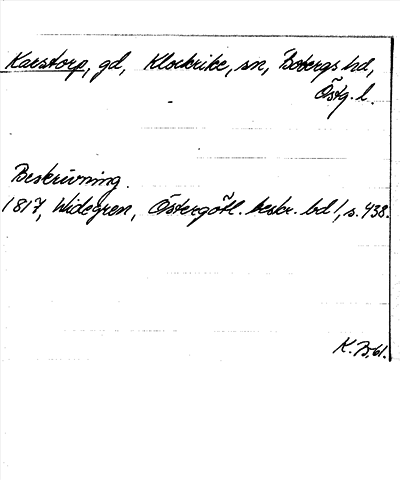 Karstorp, gd, Klockrike, sn, Bobergs hd,
Östg. l.
Beskrivning.
1817, Widegren, Östergötl. beskr. bd 1, s. 438.
K. B. 61.